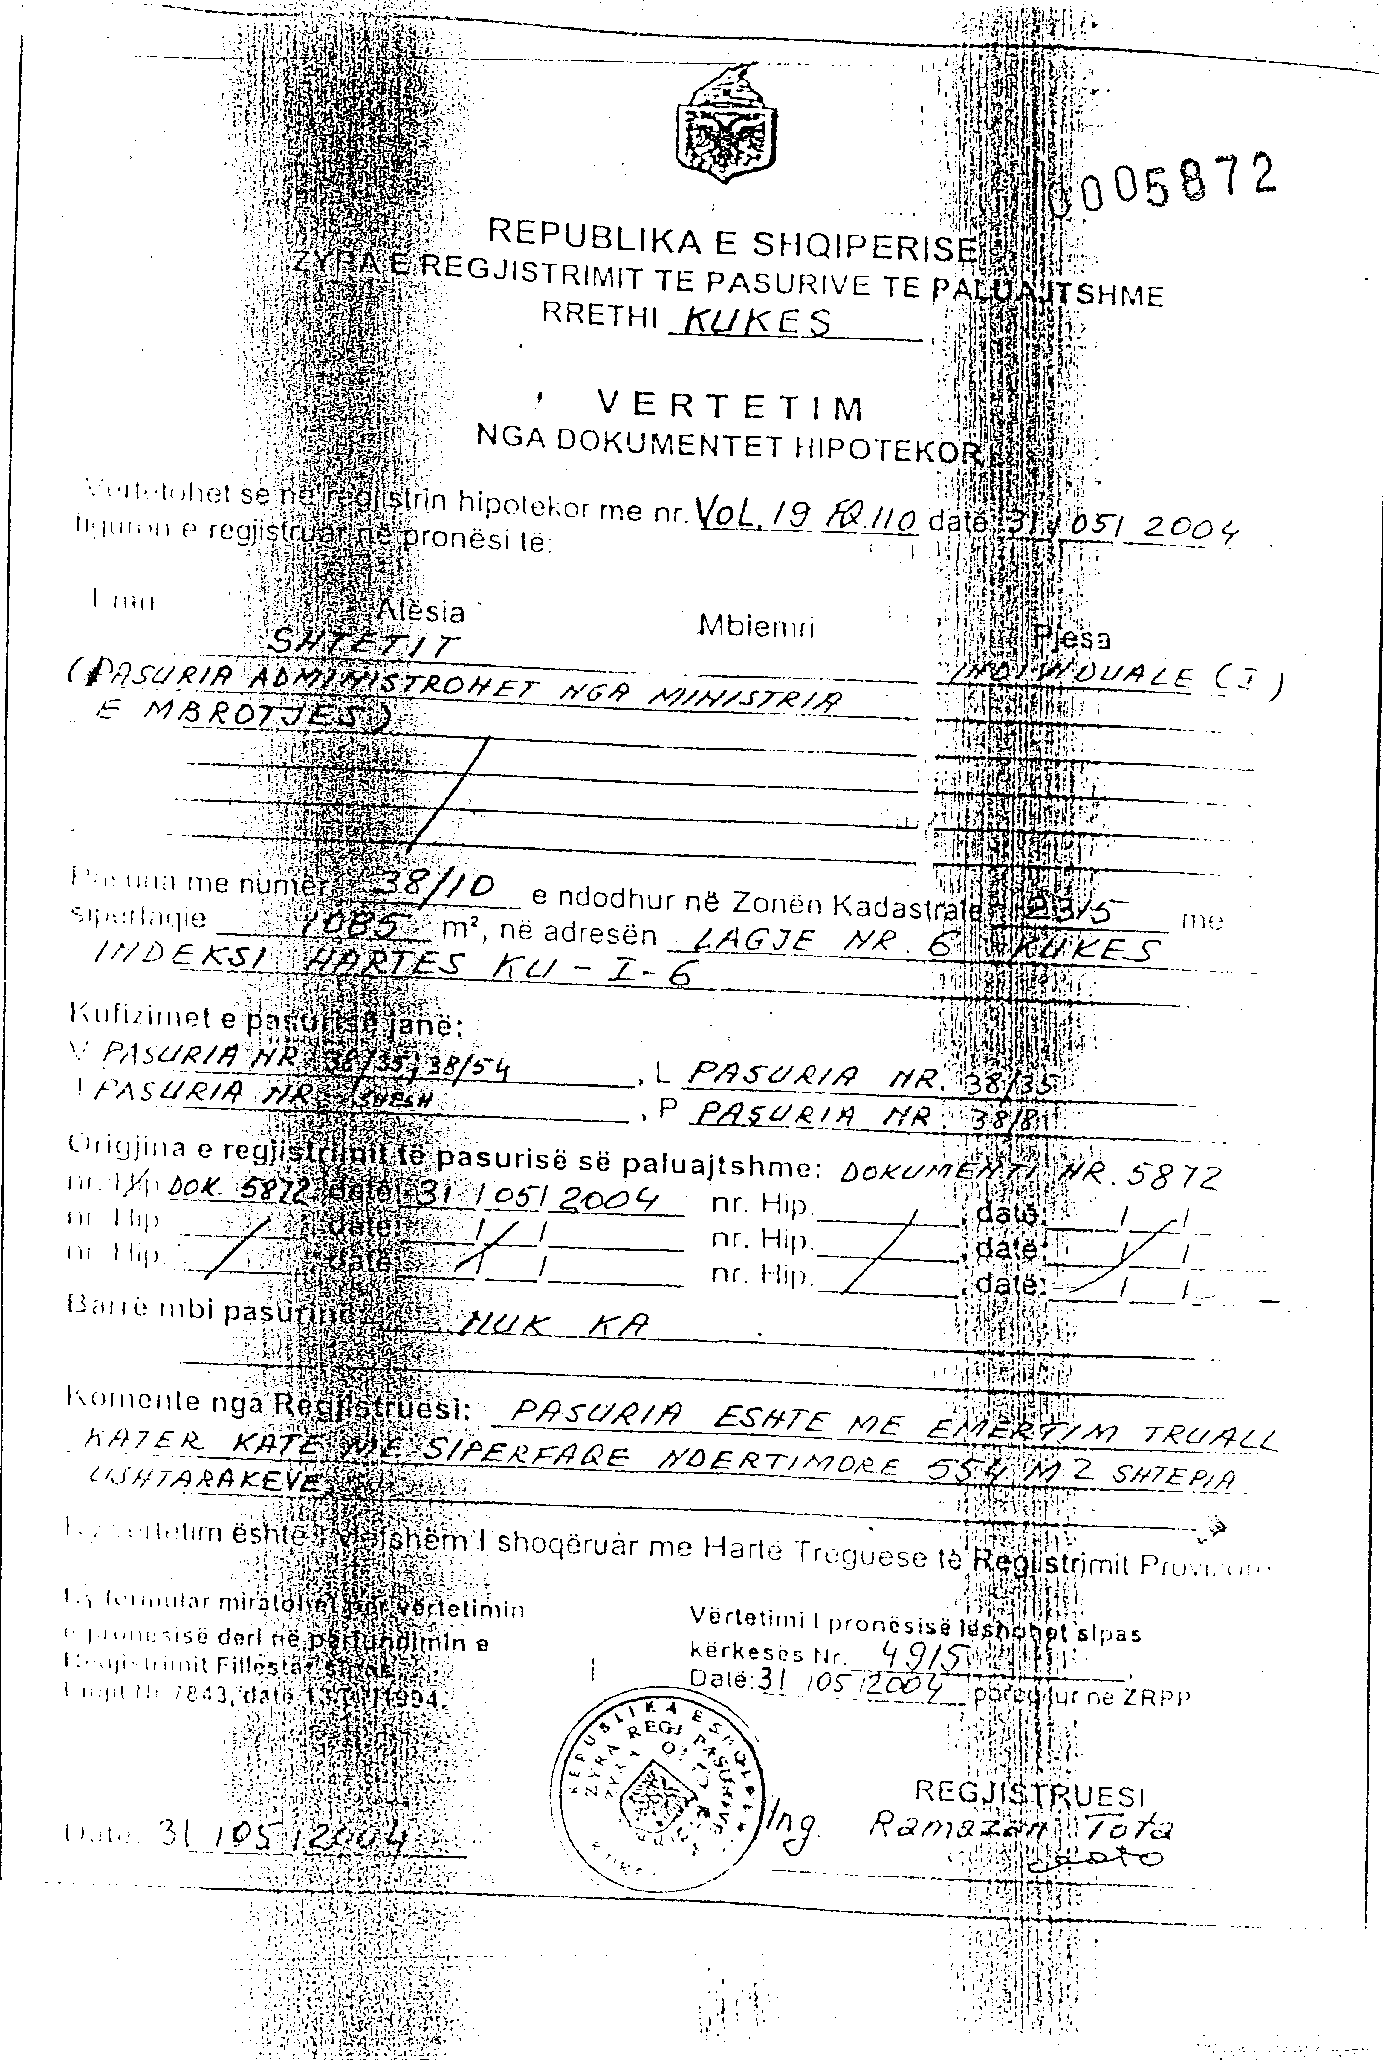 0005872
REPUBLIKA E SHQIPERISE
ZYRA E REGJISTRIMIT TE PASURIVE TE PALUAJTSHME
RRETHI KUKES
VERTETIM
NGA DOKUMENTET HIPOTEKOR
Vertetohet se në regjistrin hipotekor me nr. VOL. 19 FQ. 110 datë 31/05/2004
figuron e regjistruar në pronësi të:
Emri Atësia Mbiemri Pjesa
SHTETIT
(PASURIA ADMINISTROHET NGA MINISTRIA INDIVIDUALE (I)
E MBROTJES)
Pasuria me numër 38/10 e ndodhur në Zonën Kadastrale 2315 me
sipërfaqje 1085 m², në adresën LAGJE NR. 6 KUKES
INDEKSI HARTES KU-I-6
Kufizimet e pasurisë janë:
V PASURIA NR. 38/35, 38/54, L PASURIA NR. 38/35
J PASURIA NR. SHESH, P PASURIA NR. 38/81
Origjina e regjistrimit të pasurisë së paluajtshme: DOKUMENTI NR. 5872
nr. Hip DOK. 5872, datë: 31/05/2004 nr. Hip. , datë: / /
nr. Hip. , datë: / / nr. Hip. , datë: / /
nr. Hip. , datë: / / nr. Hip. , datë: / /
Barrë mbi pasurinë NUK KA
Komente nga Regjistruesi: PASURIA ESHTE ME EMERTIM TRUALL
KATER KATE ME SIPERFAQE NDERTIMORE 554 M2 SHTEPIA
USHTARAKEVE
Ky vertetim është i vlefshëm I shoqëruar me Hartë Treguese të Regjistrimit Provizore
Ky formular miratohet për vërtetimin
e pronësisë deri në përfundimin e
Regjistrimit Fillestar sipas
Ligjit Nr 7843, datë 13/07/1994.
Vërtetimi I pronësisë lëshohet sipas
kërkesës Nr. 4915
Datë: 31/05/2004 paraqitur në ZRPP
REPUBLIKA E SHQIPERISE
ZYRA REGJ PASURIVE
KUKES
REGJISTRUESI
Ing. Ramazan Tota
Datë: 31/05/2004